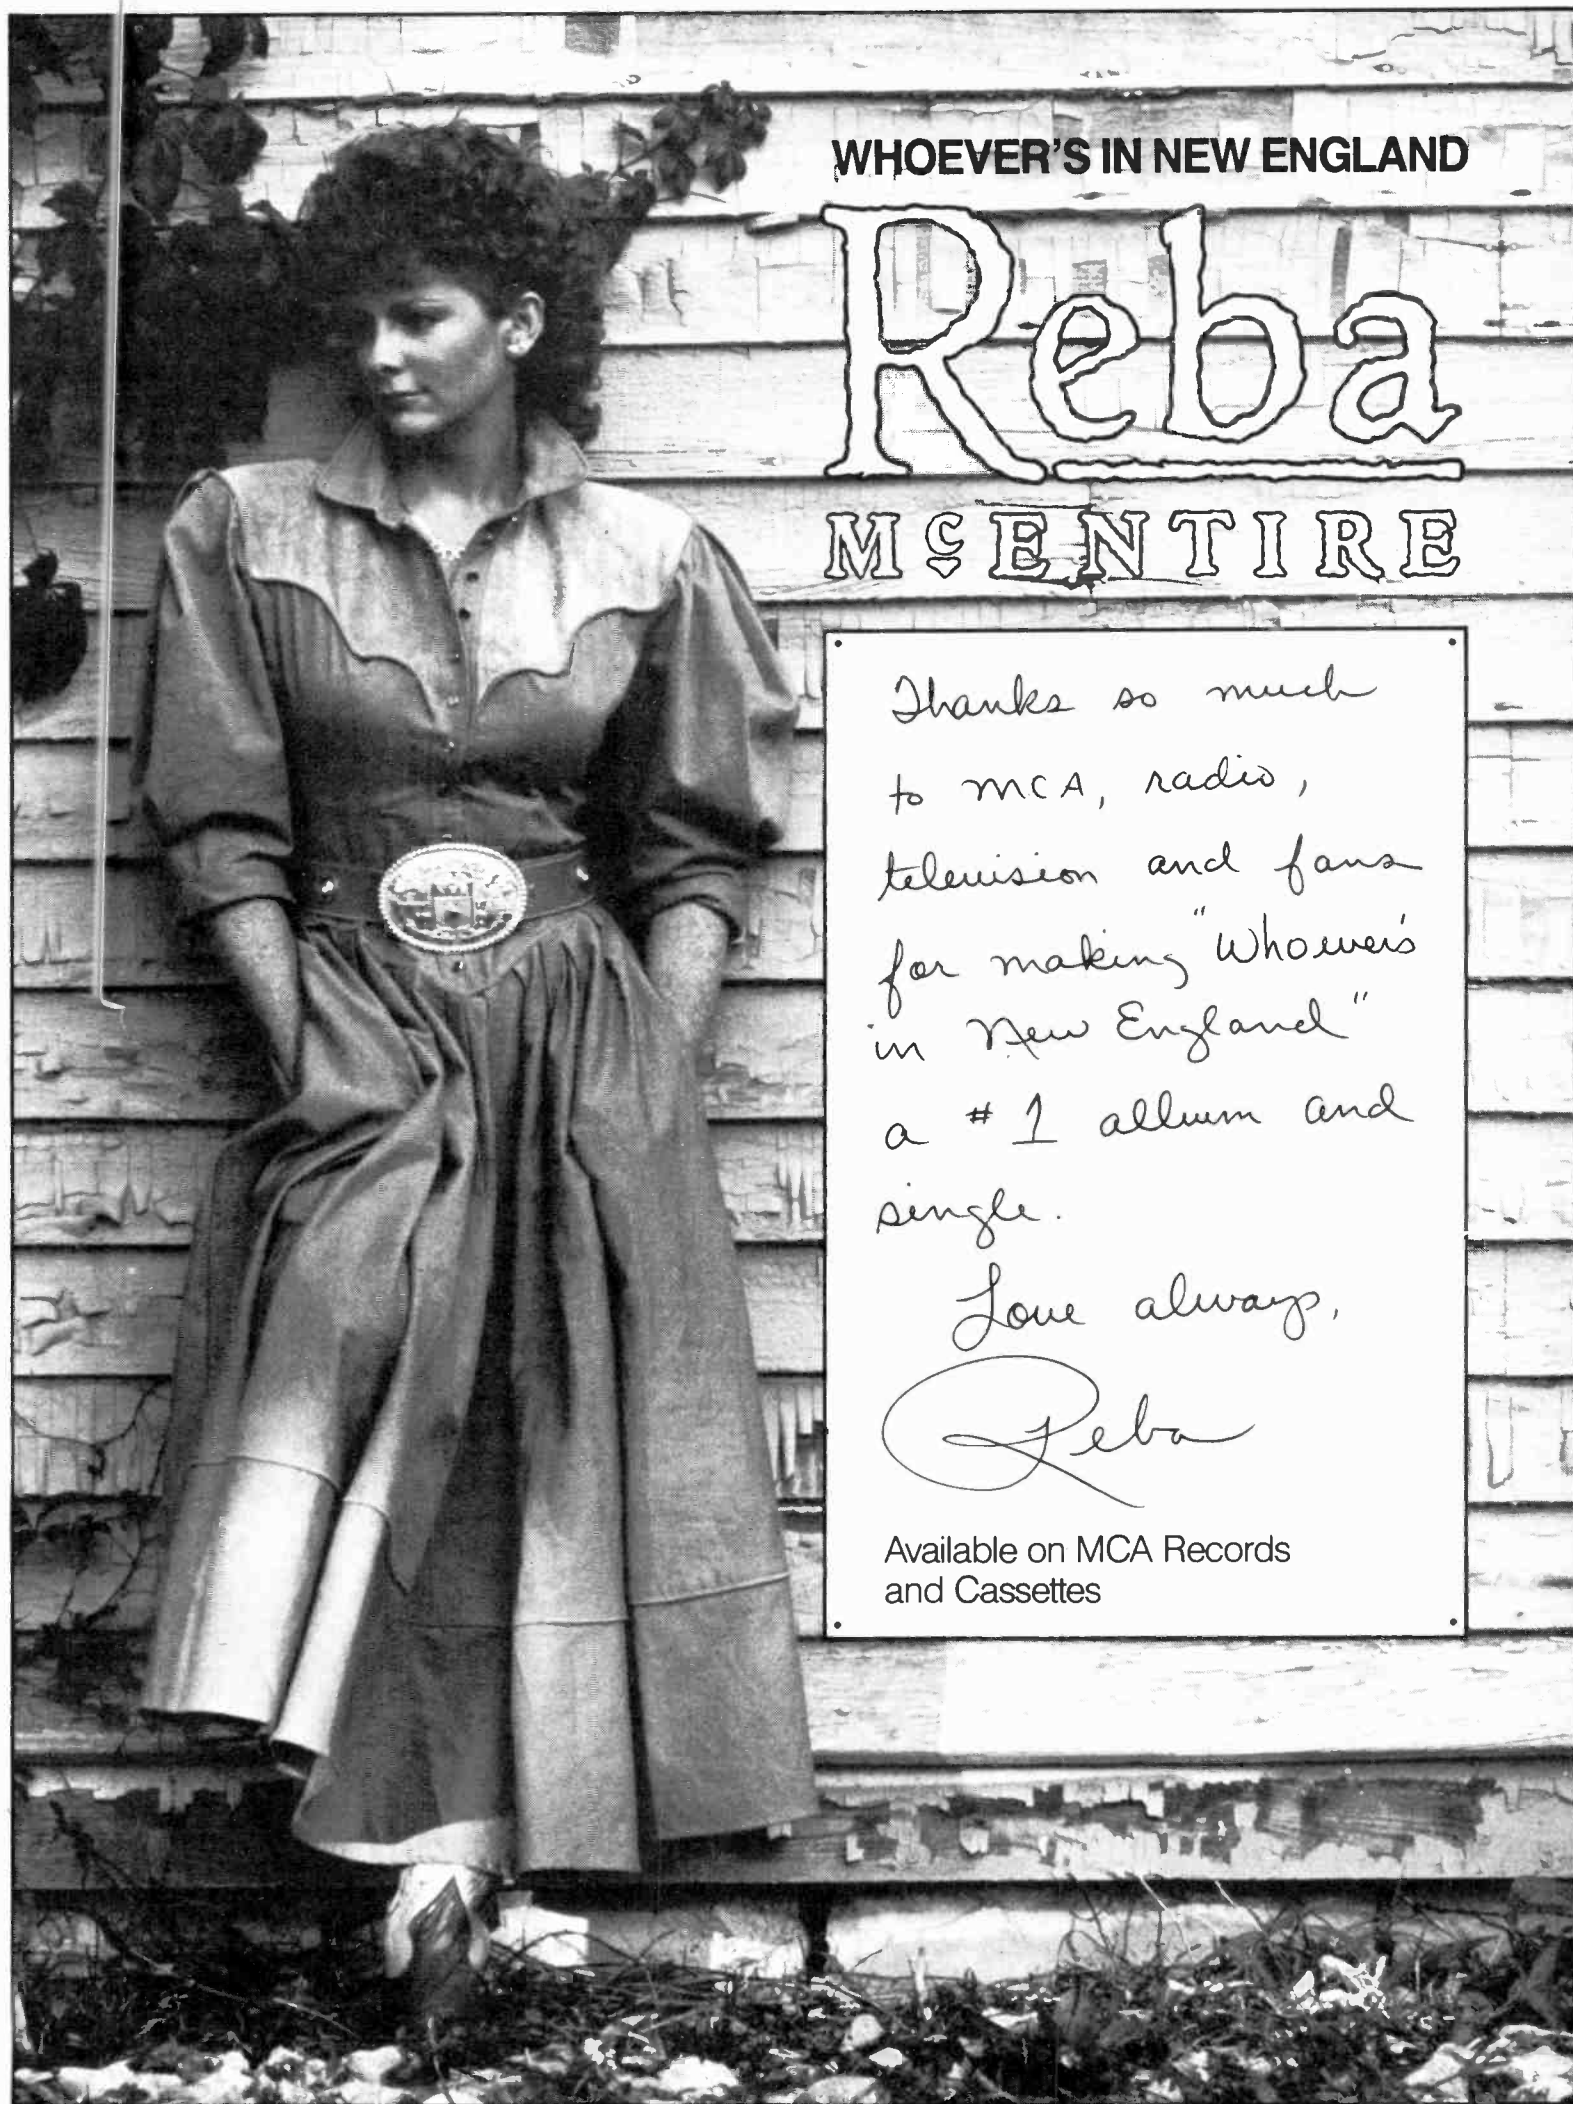 WHOEVER'S IN NEW ENGLAND
Reba
McENTIRE
Thanks so much
to MCA, radio,
television and fans
for making "Whoever's
in New England"
a #1 album and
single.
Love always,
Reba
Available on MCA Records
and Cassettes